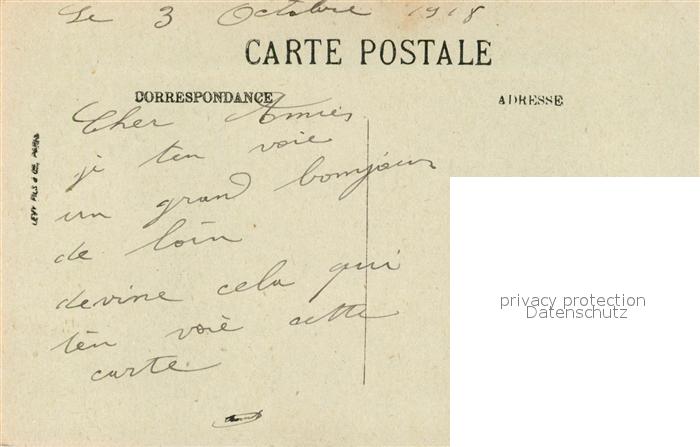 Le 3 Octobre 1918
CARTE POSTALE
CORRESPONDANCE
ADRESSE
Cher Amies
je ten voie
un grand bomjour
de loin
devine cela qui
tén voiè cette
carte
LEVY FILS & Cie, PARIS
privacy protection
Datenschutz